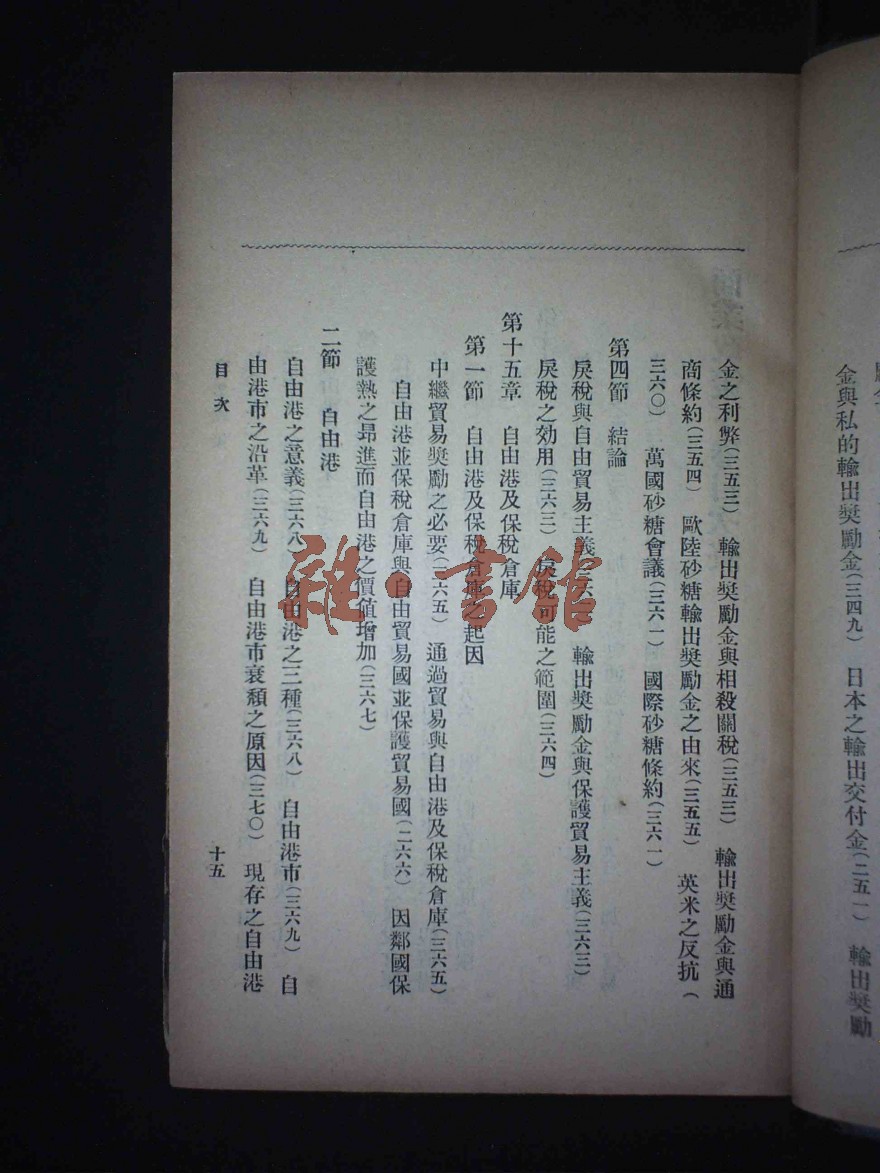 金與私的輸出獎勵金(三四九)　日本之輸出交付金(二五一)　輸出獎勵
金之利弊(三五三)　輸出獎勵金與相殺關稅(三五三)　輸出獎勵金與通
商條約(三五四)　歐陸砂糖輸出獎勵金之由來(三五五)　英米之反抗(
三六〇)　萬國砂糖會議(三六一)　國際砂糖條約(三六一)
第四節　結論
戾稅與自由貿易主義　輸出獎勵金與保護貿易主義(三六三)
戾稅之効用(三六三)　戾稅可能之範圍(三六四)
第十五章　自由港及保稅倉庫
第一節　自由港及保稅倉庫之起因
中繼貿易獎勵之必要(三六五)　通過貿易與自由港及保稅倉庫(三六五)
自由港並保稅倉庫與自由貿易國並保護貿易國(二六六)　因鄰國保
護熱之昻進而自由港之價値增加(三六七)
二節　自由港
自由港之意義(三六八)　自由港之三種(三六八)　自由港市(三六九)　自
由港市之沿革(三六九)　自由港市衰頽之原因(三七〇)　現存之自由港
目次
十五
雜·書館